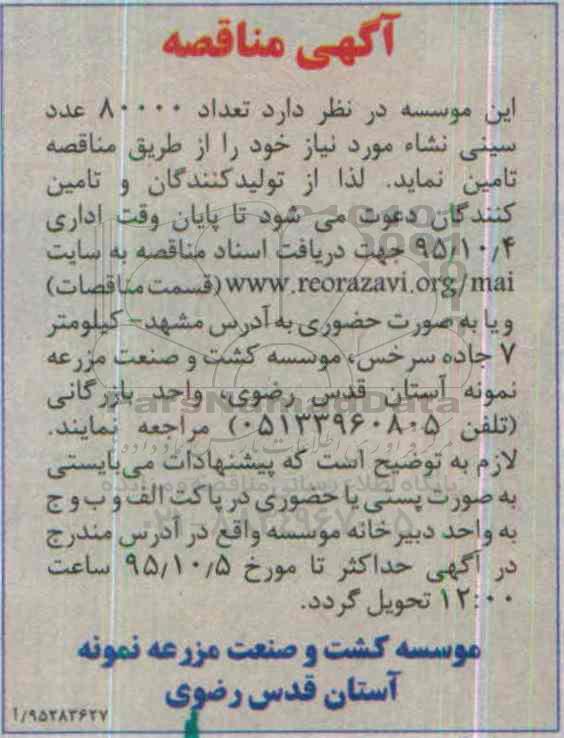 آگهی مناقصه
این موسسه در نظر دارد تعداد ۸۰۰۰۰ عدد
سینی نشاء مورد نیاز خود را از طریق مناقصه
تامین نماید. لذا از تولیدکنندگان و تامین
کنندگان دعوت می شود تا پایان وقت اداری
۹۵/۱۰/۴ جهت دریافت اسناد مناقصه به سایت
www.reorazavi.org/mai (قسمت مناقصات)
و یا به صورت حضوری به آدرس مشهد- کیلومتر
۷ جاده سرخس، موسسه کشت و صنعت مزرعه
نمونه آستان قدس رضوی، واحد بازرگانی
(تلفن ۰۵۱۳۳۹۶۰۸۰۵) مراجعه نمایند.
لازم به توضیح است که پیشنهادات می‌بایستی
به صورت پستی یا حضوری در پاکت الف و ب و ج
به واحد دبیرخانه موسسه واقع در آدرس مندرج
در آگهی حداکثر تا مورخ ۹۵/۱۰/۵ ساعت
۱۲:۰۰ تحویل گردد.
موسسه کشت و صنعت مزرعه نمونه
آستان قدس رضوی
۱/۹۵۲۸۳۶۲۷
ParsNamadData